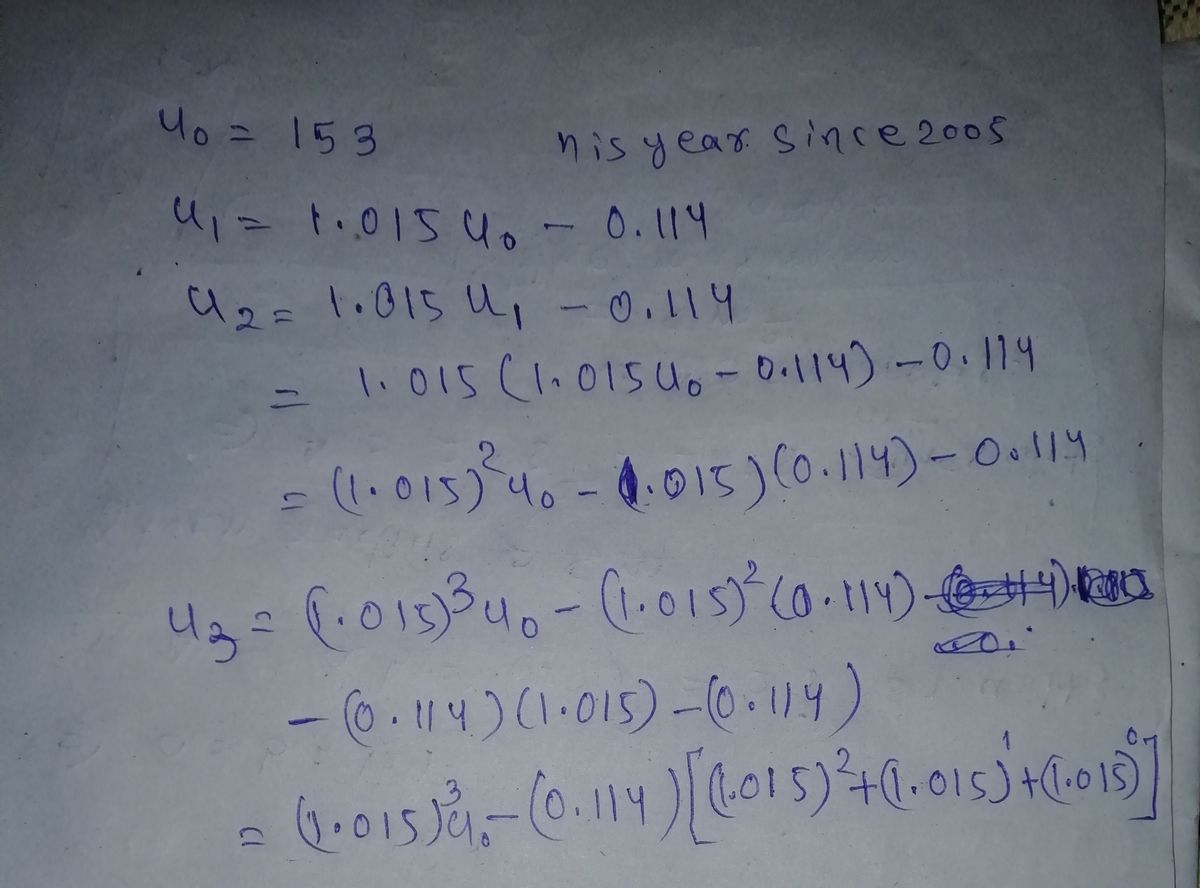 u₀ = 153 n is year since 2005
u₁ = 1.015 u₀ - 0.114
u₂ = 1.015 u₁ - 0.114
= 1.015 (1.015 u₀ - 0.114) - 0.114
= (1.015)² u₀ - (1.015)(0.114) - 0.114
u₃ = (1.015)³ u₀ - (1.015)² (0.114)
- (0.114)(1.015) - (0.114)
= (1.015)³ u₀ - (0.114) [(1.015)² + (1.015)¹ + (1.015)⁰]